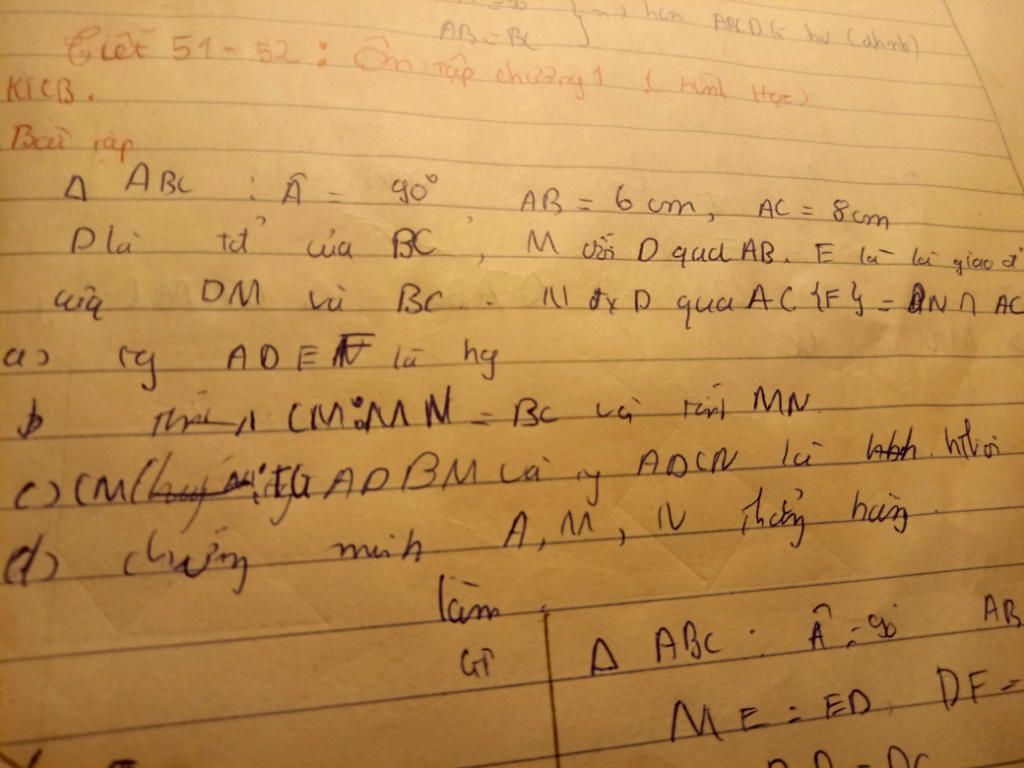 AB = BC } => hcn ABCD là hv (dhnb)
Tiết 51 - 52 : Ôn tập chương 1 ( Hình Học)
KTCB.
Bài tập
Δ ABC : Â = 90° AB = 6 cm, AC = 8cm
D là tđ của BC, M đx với D qua AB. E là là giao đ
của DM và BC. N đx D qua AC {F} = DN ∩ AC
a) tg ADEF là hg
b CM: MN = BC và tính MN
c) CM tg ADBM và tg ADCN là hthoi
d) chứng minh A, M, N thẳng hàng
làm
GT Δ ABC : Â = 90 AB
ME = ED, DF =